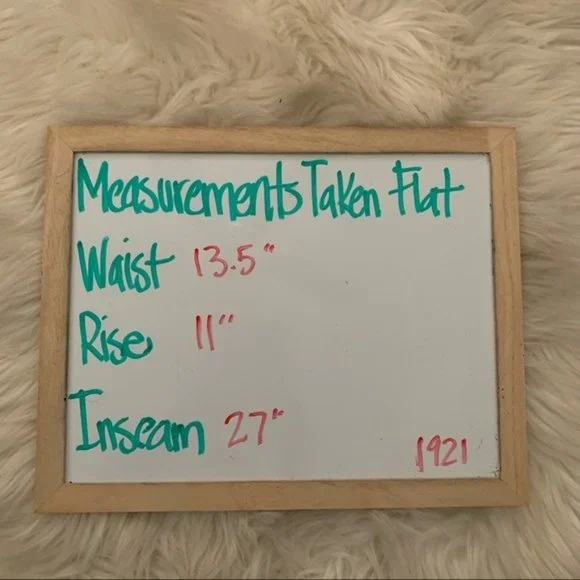 Measurements Taken Flat
Waist 13.5"
Rise 11"
Inseam 27"
1921